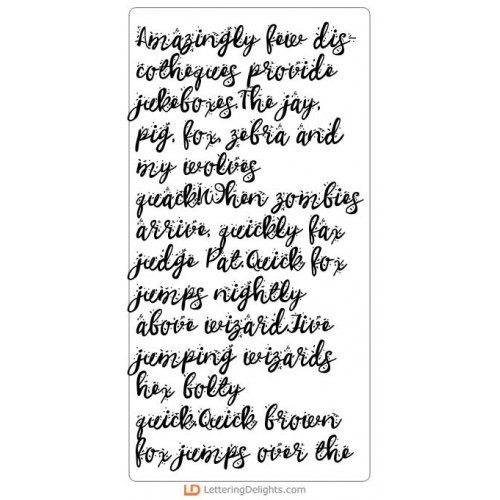 Amazingly few dis-
cotheques provide
jukeboxes.The jay,
pig, fox, zebra and
my wolves
quack!When zombies
arrive, quickly fax
judge Pat.Quick fox
jumps nightly
above wizard.Five
jumping wizards
hex bolty
quick.Quick brown
fox jumps over the
LD LetteringDelights.com